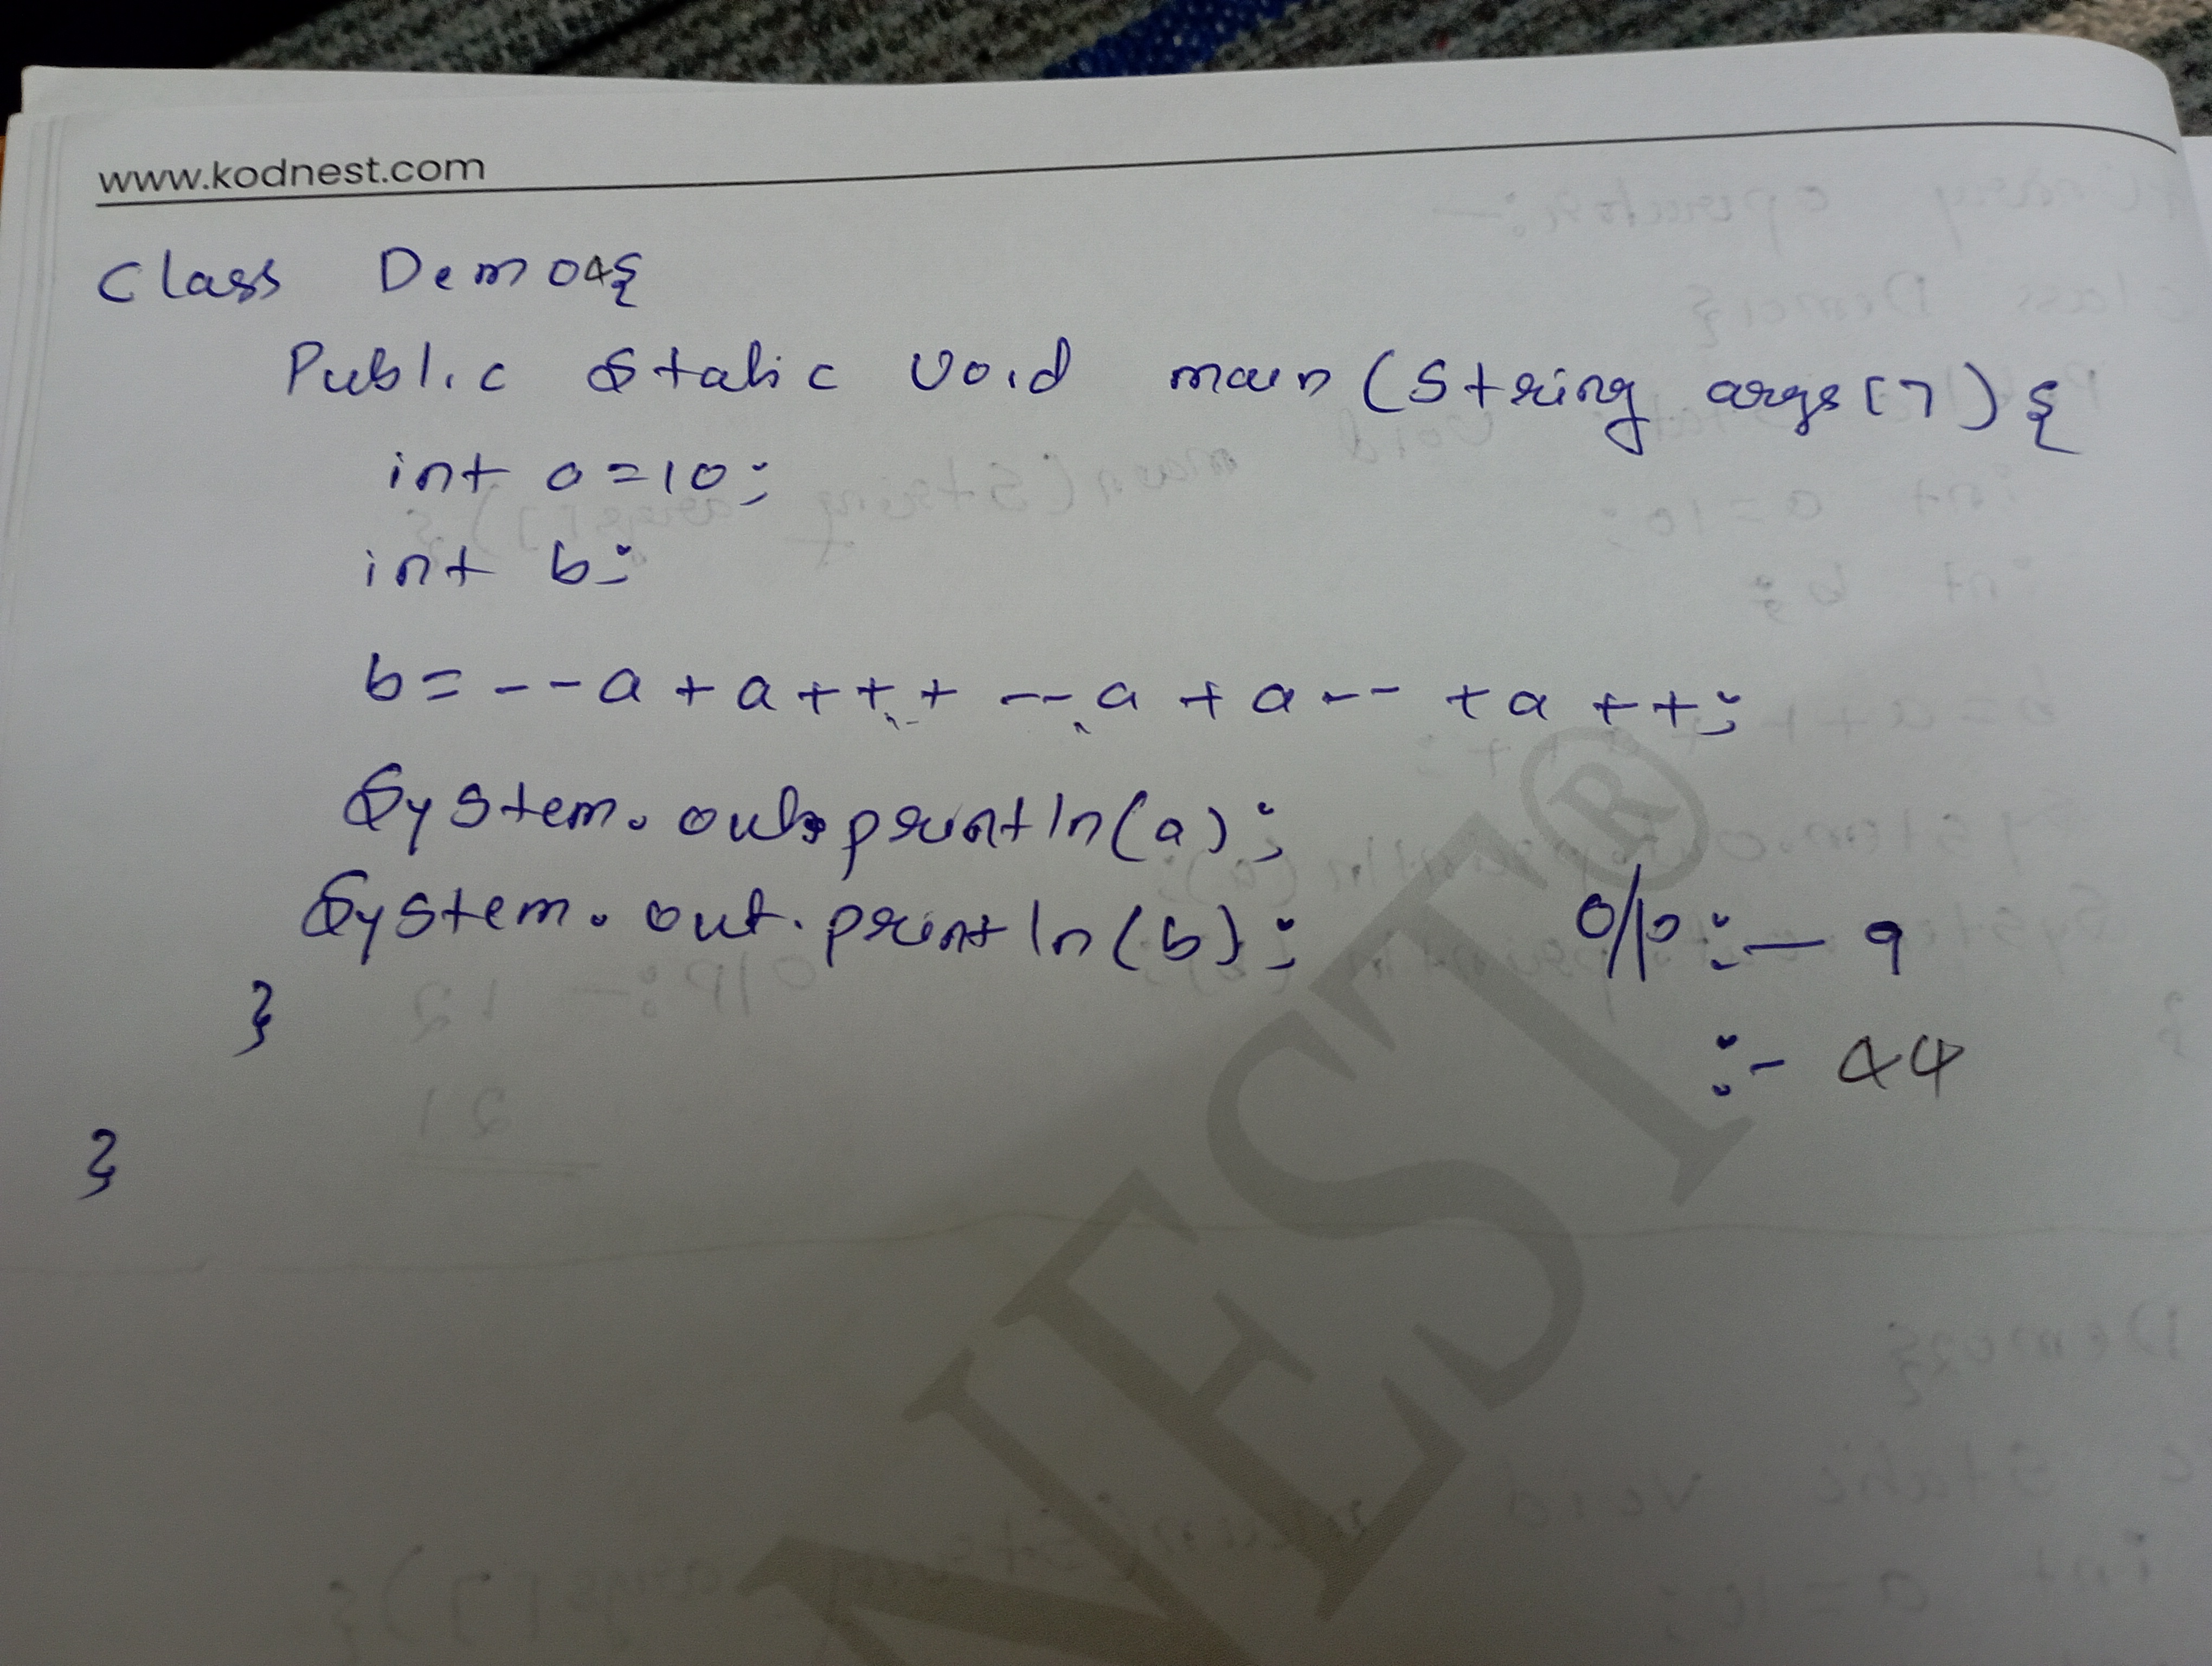 www.kodnest.com
Class Demo4{
Public Static Void main(String args[]){
int a=10;
int b;
b= --a + a++ + --a + a-- +a ++;
System.out.println(a);
System.out.println(b);
O/p :- 9
:- 44
}
}
NEST®